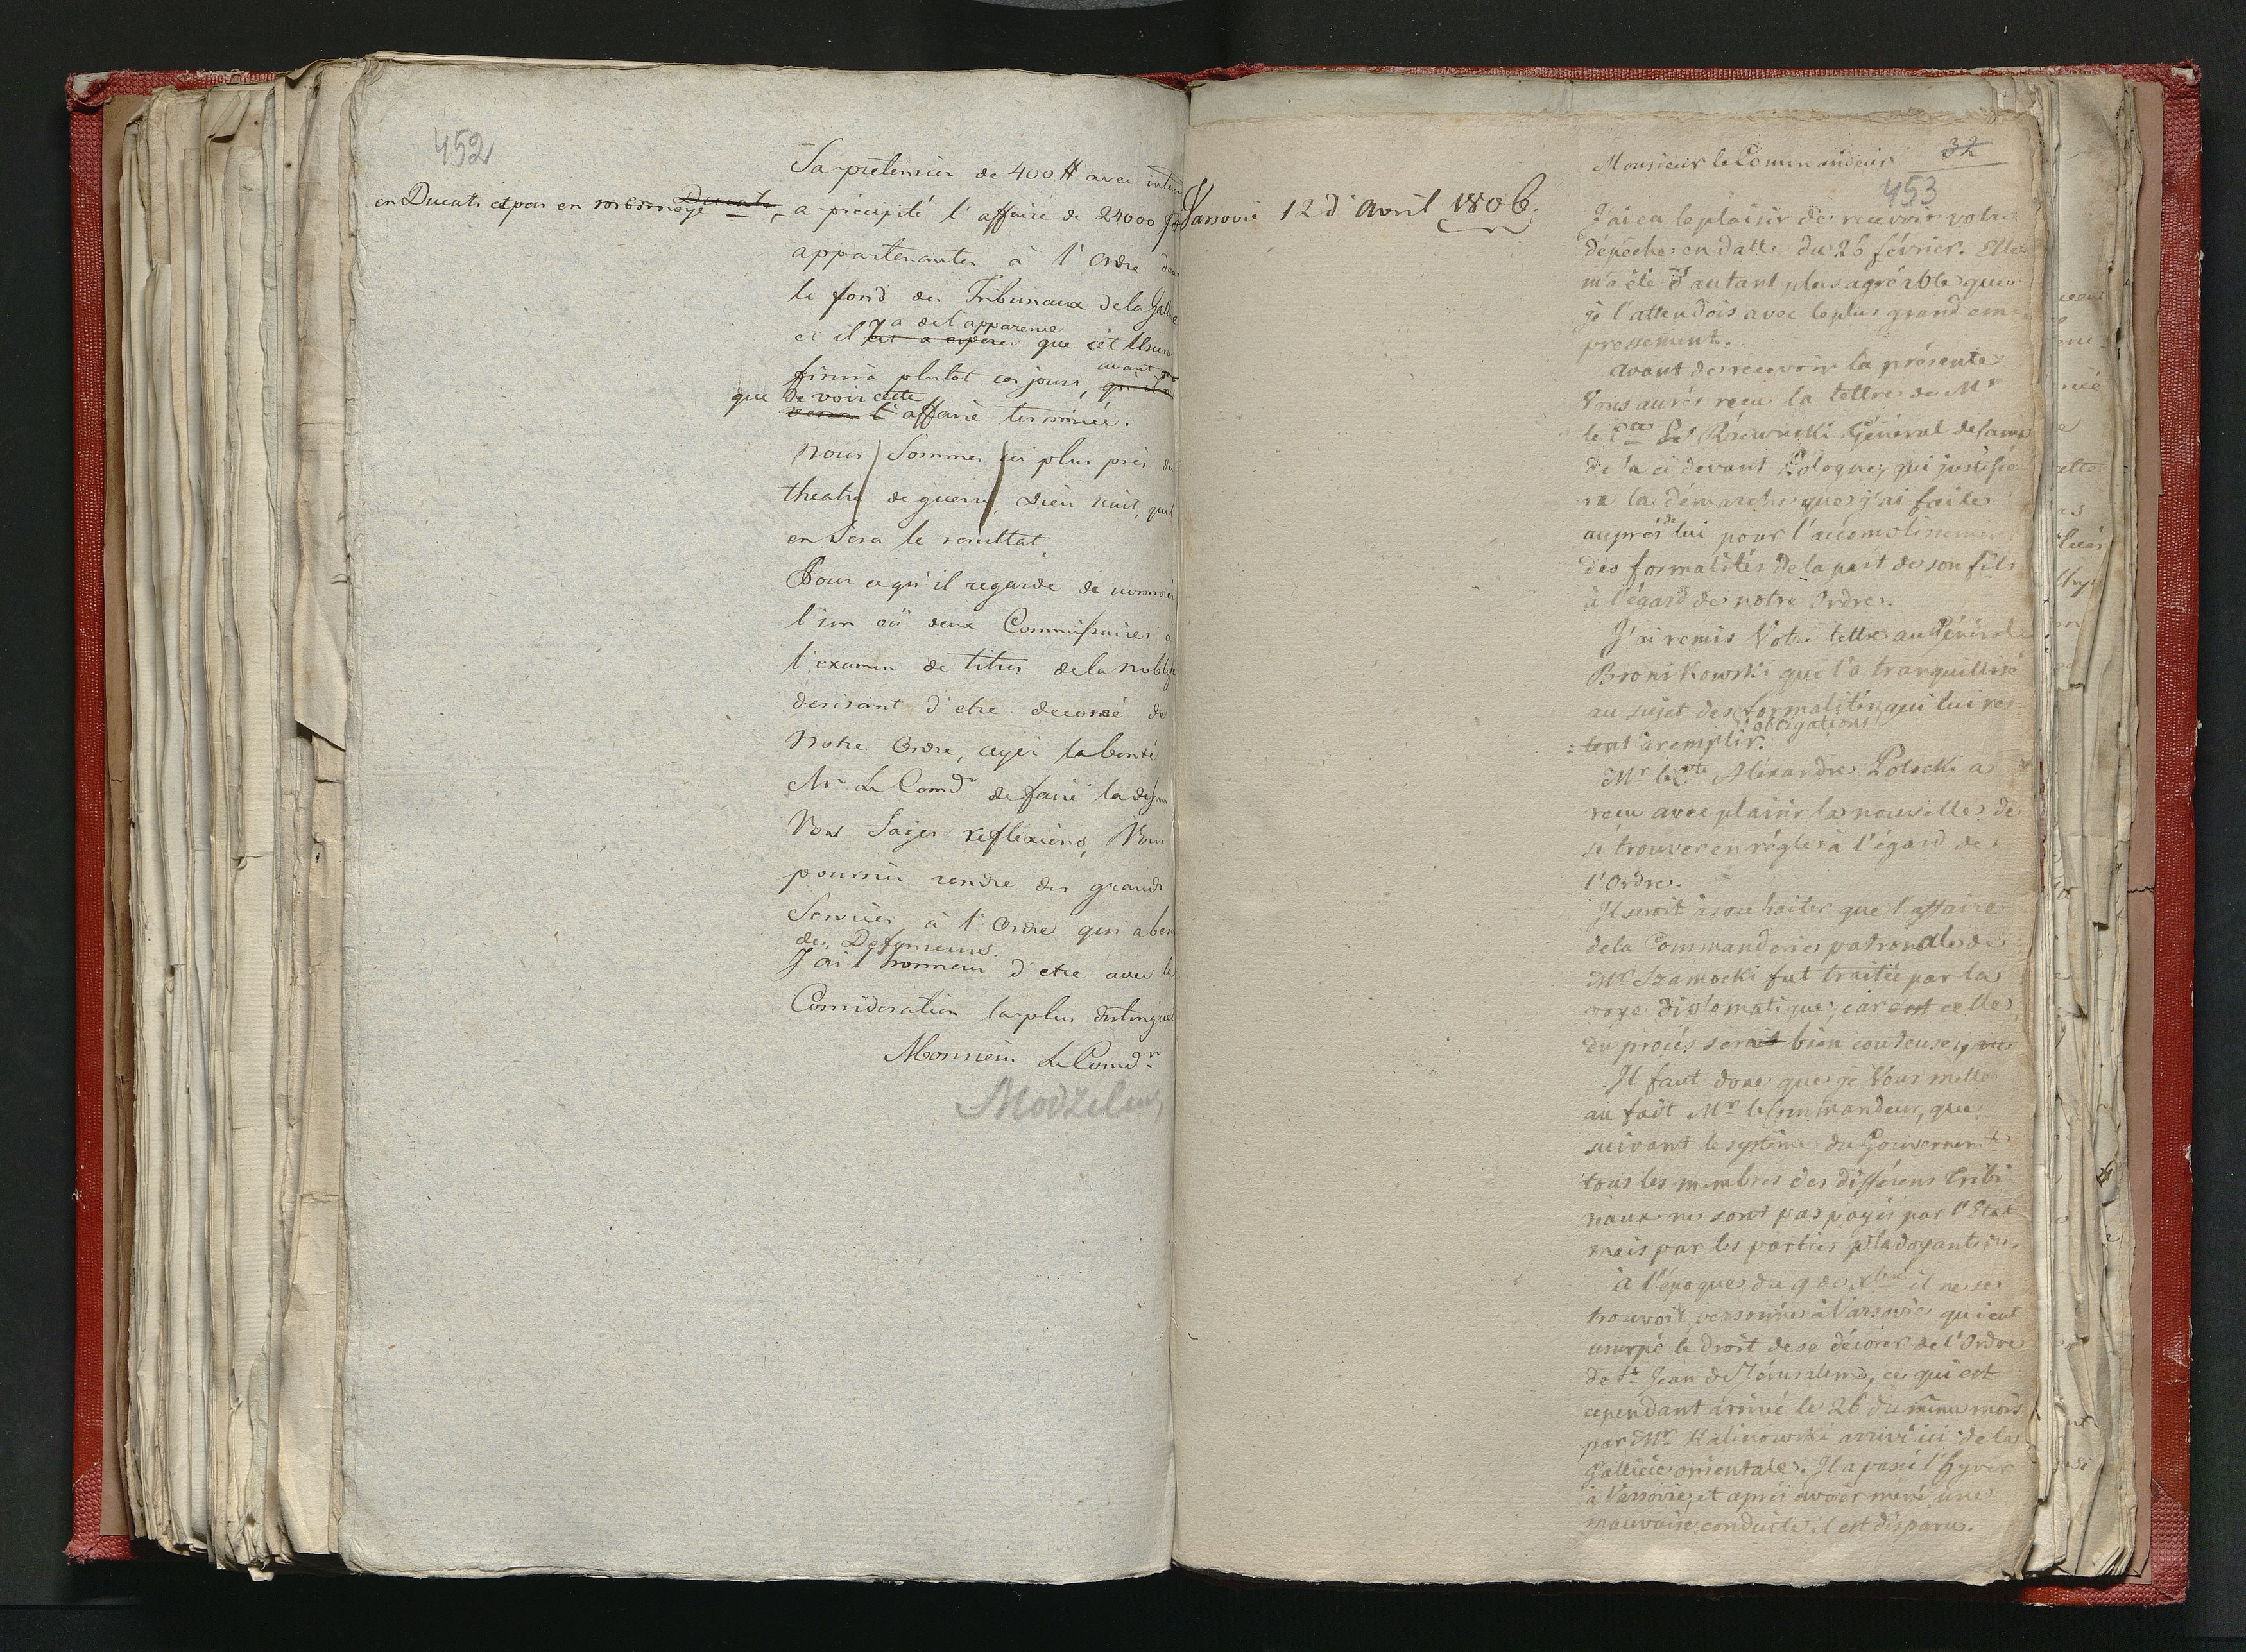 452
Sa prétension de 400 # avec
en Ducats et pas en monnoye Ducats, a précipité l'affaire de 24000
appartenantes à l'Ordre
le fond des Tribunaux de la
et il y a de l'apparence est a esperer que cet
finira plutot ces jours, avant qu'il
que de voir cette verra l'affaire terminée.
Nous sommes ici plus près du
theatre de guerre, Dieu sait, quel
en sera le resultat.
Pour ce qu'il regarde de nommer
l'un où deux Commissaires à
l'examen de titres de la
desirant d'etre decoré de
Notre Ordre, ayéz la bonté
Mr Le Comdr de faire la dessus
Vos Sages reflexions, Vous
pourriez rendre des grands
Services à l'Ordre qui a
des Defenseurs.
J'ai l'honneur d'etre avec la
Consideration la plus distinguée
Monsieur Le Comdr
Modzelew
Varsovie 12 d'Avril 1806.
Monsieur le Commandeur
32
453
J'ai eu le plaisir de recevoir votre
dépêche en datte du 26 février. Elle
m'a été d'autant plus agréable que
je l'attendois avec le plus grand em-
pressement.
Avant de recevoir la présente
Vous aurés reçu la lettre de Mr
le Cte Rzewuski Général
de la ci devant Pologne, qui justifie-
ra la démarche que j'ai faite
auprès de lui pour l'accomplissement
des formalités de la part de son fils
à l'égard de notre Ordre.
J'ai remis Votre lettre au Général
Bronikowski qui l'a tranquillisé
au sujet des formalités qui lui res-
obligations
tent à remplir.
Mr le Cte Alexandre Potocki a
reçu avec plaisir la nouvelle de
se trouver en régle à l'égard de
l'Ordre.
Il seroit à souhaiter que l'affaire
de la Commanderie patronale de
Mr Szamocki fut traitée par la
voye diplomatique, car c'est celle
du procès serait bien couteuse,
Il faut donc que je Vous mette
au fait Mr le Commandeur, que
suivant le systême du Gouvernemt
tous les membres des différens tribu-
naux ne sont pas payés par l'Etat
mais par les parties pladoyantes.
à l'époque du 9 de Xbre il ne se
trouvoit personne à Varsovie qui eut
usurpé le droit de se décorer de l'Ordre
de St Jean de Jérusalem, ce qui est
cependant arrivé le 26 du même mois
par Mr Kalinowski arrivé ici de la
Gallicie orientale. Il a passé l'hyver
à Varsovie, et après avoir mené une
mauvaise conduite il est disparu.